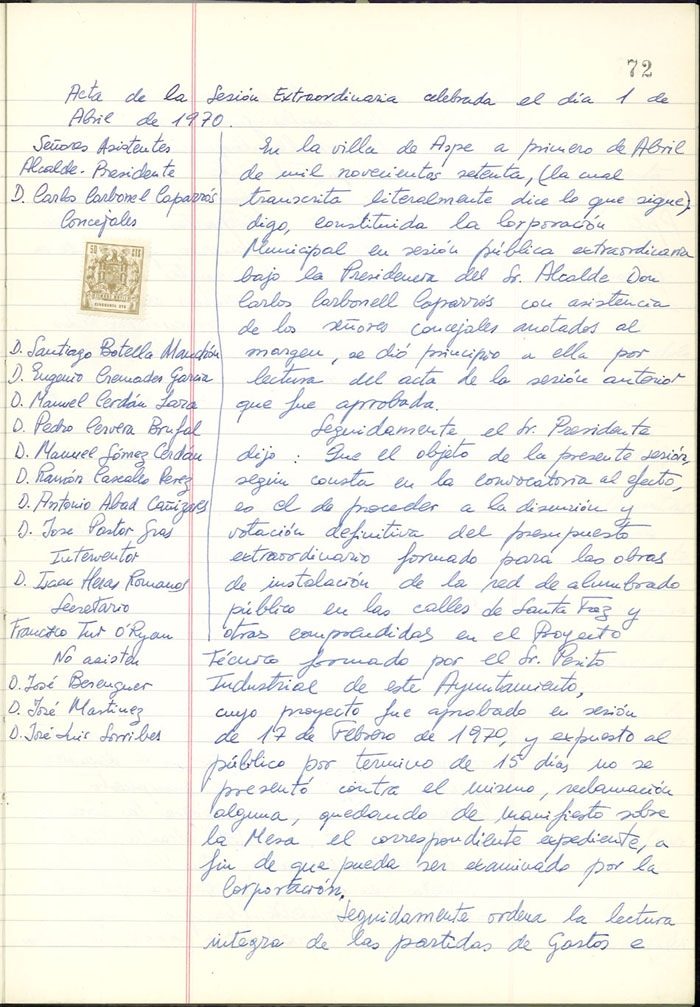 72
Acta de la Sesión Extraordinaria celebrada el día 1 de
Abril de 1970.
Señores Asistentes
Alcalde-Presidente
D. Carlos Carbonel Caparrós
Concejales
50 CTS
D. Santiago Botella
D. Eugenio Cremades García
D. Manuel Cerdán Lara
D. Pedro Cervera Brufal
D. Manuel Gómez Cerdán
D. Ramón Cascales Perez
D. Antonio Abad Cañizares
D. Jose Pastor Gras
Interventor
D. Isaac Heras Romanos
Secretario
Francisco O'Ryan
No asisten
D. José Berenguer
D. José Martinez
D. José-Luis Sorribes
En la villa de Aspe a primero de Abril
de mil novecientas setenta, (la cual
transcrita literalmente dice lo que sigue),
digo, constituida la Corporación
Municipal en sesión pública extraordinaria
bajo la Presidencia del Sr. Alcalde Don
Carlos Carbonell Caparrós con asistencia
de los señores concejales anotados al
margen, se dió principio a ella por
lectura del acta de la sesión anterior
que fue aprobada.
Seguidamente el Sr. Presidente
dijo: Que el objeto de la presente sesión,
según consta en la convocatoria al efecto,
es el de proceder a la discusión y
votación definitiva del presupuesto
extraordinario formado para las obras
de instalación de la red de alumbrado
público en las calles de Santa Faz y
otras comprendidas en el Proyecto
Técnico formado por el Sr. Perito
Industrial de este Ayuntamiento,
cuyo proyecto fue aprobado en sesión
de 17 de Febrero de 1970, y expuesto al
público por termino de 15 días no se
presentó contra el mismo, reclamación
alguna, quedando de manifiesto sobre
la Mesa el correspondiente expediente, a
fin de que pueda ser examinado por la
Corporación.
Seguidamente ordena la lectura
integra de las partidas de Gastos e